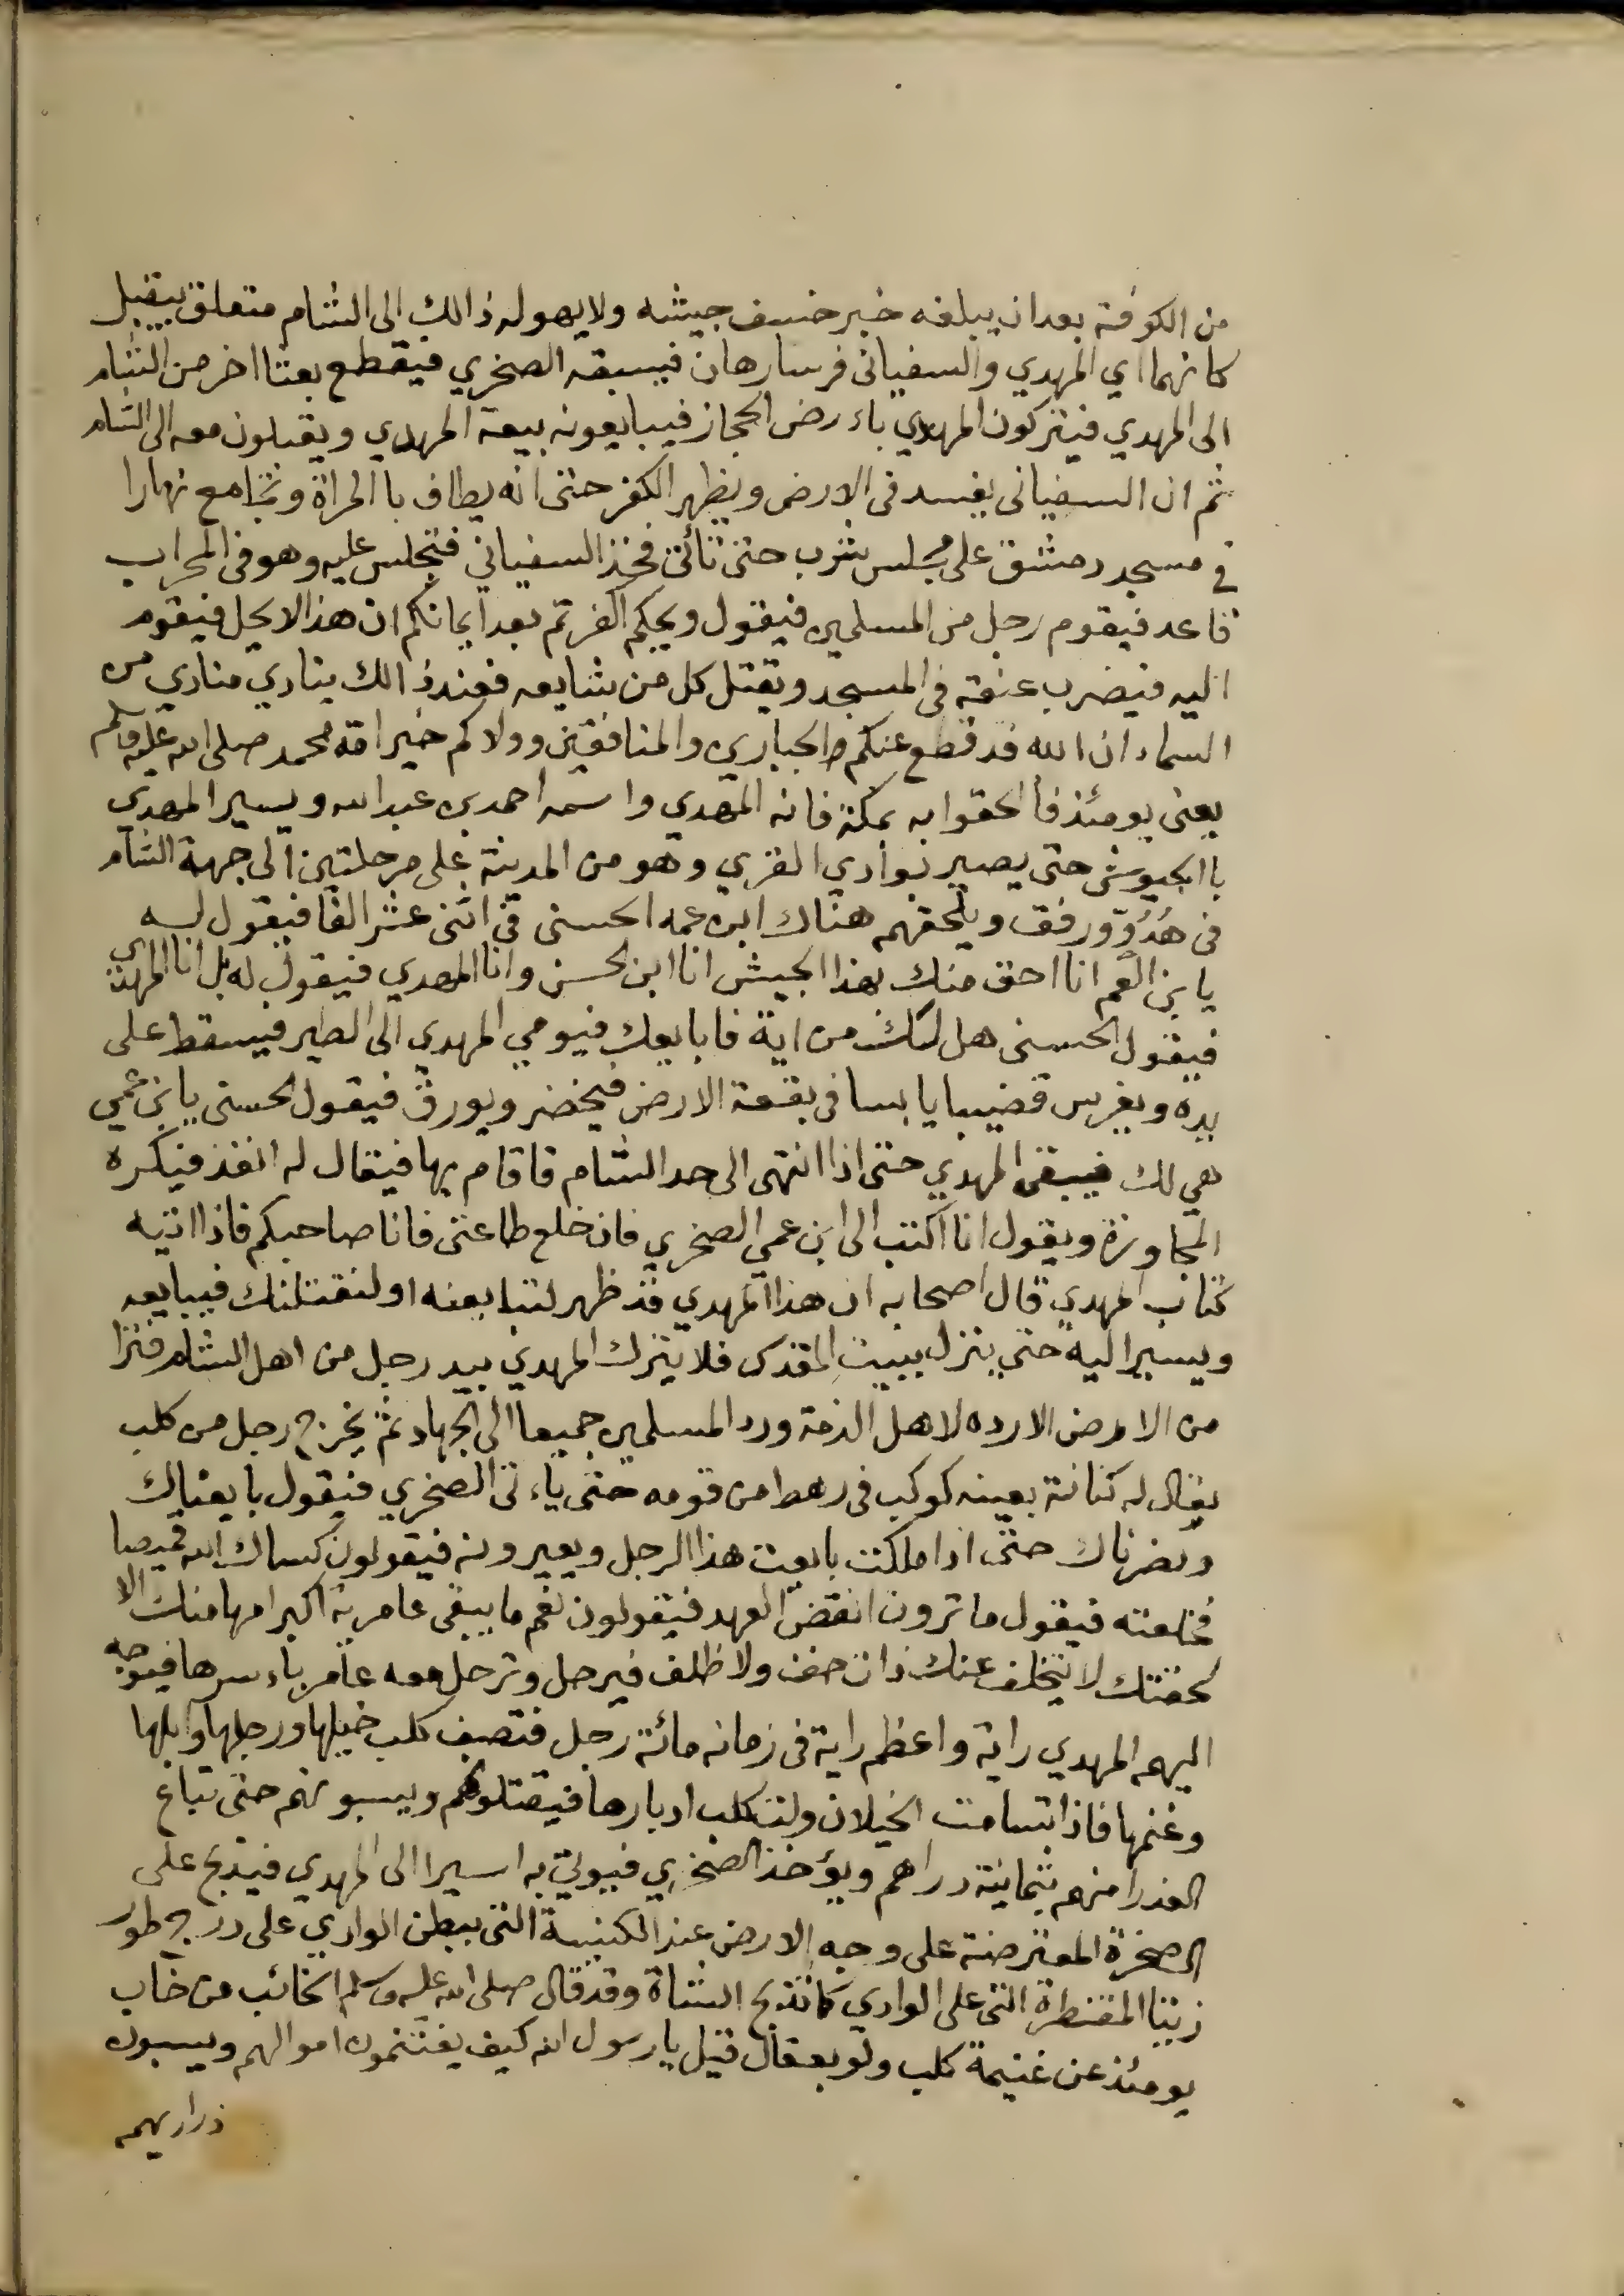 من الكوفة بعد ان يبلغه خبر خسف جيشه ولا يهوله ذالك الى الشام متعلق بيقبل
كانهما اي المهدي والسفياني فرسا رهان فيسبقه الصخري فيقطع بعثا اخر من الشام
الى المهدي فيتركون المهدي باءرض الحجاز فيبايعونه بيعة المهدي ويقبلون معه الى الشام
ثم ان السفياني يفسد في الارض ويظهر الكفر حتى انه يطاف باالمراة وتجامع نهارا
في مسجد دمشق على مجلس شرب حتى تأتى فخذ السفياني فتجلس عليه وهو في المحراب
قاعد فيقوم رجل من المسلمين فيقول ويحكم اكفرتم بعد ايمانكم ان هذا لايحل فيقوم
اليه فيضرب عنقه في المسجد ويقتل كل من شايعه فعند ذالك ينادي منادي من
السماء ان الله قد قطع عنكم الجبارين والمنافقين وولاكم خير امة محمد صلى الله عليه وسلم
يعني يومئذ فاالحقوا به بمكة فانه المهدي واسمه احمد بن عبد الله ويسير المهدي
باالجيوش حتى يصير بوادي القرى وهو من المدينة على مرحلتين الى جهة الشام
في هُدُوّ ورفق ويلحقهم هناك ابن عمه الحسني في اثنى عشر الفا فيقول له
يا بن العم انا احق منك بهذا الجيش انا ابن الحسن وانا المهدي فيقول له بل انا المهدي
فيقول الحسني هل لك من اية فابايعك فيومي المهدي الى الطير فيسقط على
يده ويغرس قضيبا يابسا في بقعة الارض فيخضر ويورق فيقول الحسني يا بن عمي
هي لك فيبقى المهدي حتى اذا انتهى الى حد الشام فاقام بها فيقال له انفذ فيكره
المجاوزة ويقول انا اكتب الى ابن عمي الصخري فان خلع طاعتي فانا صاحبكم فاذا اتيه
كتاب المهدي قال اصحابه ان هذا المهدي قد ظهر لتبايعنه او لنقتلنك فيبايعه
ويسير اليه حتى ينزل ببيت المقدس فلا يترك المهدي بيد رجل من اهل الشام فترا
من الارض الا رده لاهل الذمة ورد المسلمين جميعا الى الجهاد ثم يخرج رجل من كلب
يقال له كنانة بعينه كوكب في رهط من قومه حتى ياءتى الصخري فيقول بايعناك
ونصرناك حتى اذا ملكت بايعت هذا الرجل ويعيرونه فيقولون كساك الله قميصا
فخلعته فيقول ما ترون انقض العهد فيقولون نعم ما يبقى عامرية اكبر امها منك الا
لحقتك لا يتخلف عنك ذات خف ولا ظلف فيرحل وترحل معه عامر باءسرها فيوجه
اليهم المهدي راية واعظم راية في زمانه مائة رجل فتصف كلب خيلها ورجلها وابلها
وغنمها فاذا تسامت الخيلان ولت كلب ادبارها فيقتلوهم ويسبونهم حتى تباع
العذرا منهم بثمانية دراهم ويؤخذ الصخري فيوتى به اسيرا الى المهدي فيذبح على
الصخرة المعترضة على وجه الارض عند الكنيسة التى ببطن الوادي على درج طور
زيتا المقنطرة التى على الوادي كما تذبح الشاة وقد قال صلى الله عليه وسلم الخائب من خاب
يومئذ عن غنيمة كلب ولو بعقال قيل يا رسول الله كيف يغتنمون اموالهم ويسبون
ذراريهم